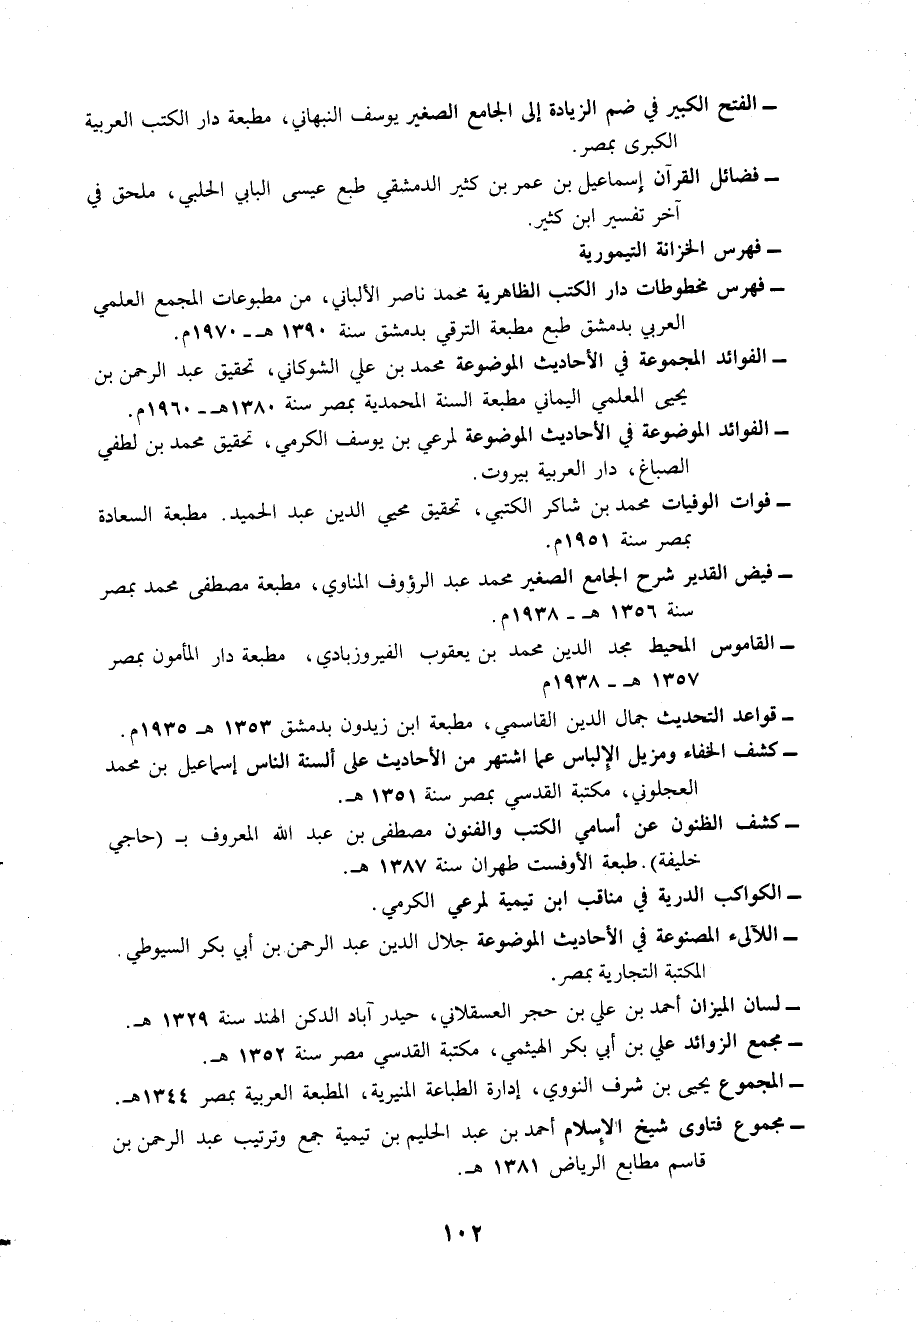 ـ الفتح الكبير في ضم الزيادة إلى الجامع الصغير يوسف النبهاني، مطبعة دار الكتب العربية
الكبرى بمصر.
ـ فضائل القرآن إسماعيل بن عمر بن كثير الدمشقي طبع عيسى البابي الحلبي، ملحق في
آخر تفسير ابن كثير.
ـ فهرس الخزانة التيمورية
ـ فهرس مخطوطات دار الكتب الظاهرية محمد ناصر الألباني، من مطبوعات المجمع العلمي
العربي بدمشق طبع مطبعة الترقي بدمشق سنة ١٣٩٠ هـ ـ ١٩٧٠م.
ـ الفوائد المجموعة في الأحاديث الموضوعة محمد بن علي الشوكاني، تحقيق عبد الرحمن بن
يحيى المعلمي اليماني مطبعة السنة المحمدية بمصر سنة ١٣٨٠هـ ـ ١٩٦٠م.
ـ الفوائد الموضوعة في الأحاديث الموضوعة لمرعي بن يوسف الكرمي، تحقيق محمد بن لطفي
الصباغ، دار العربية بيروت.
ـ فوات الوفيات محمد بن شاكر الكتبي، تحقيق محيي الدين عبد الحميد. مطبعة السعادة
بمصر سنة ١٩٥١م.
ـ فيض القدير شرح الجامع الصغير محمد عبد الرؤوف المناوي، مطبعة مصطفى محمد بمصر
سنة ١٣٥٦ هـ ـ ١٩٣٨م.
ـ القاموس المحيط مجد الدين محمد بن يعقوب الفيروزبادي، مطبعة دار المأمون بمصر
١٣٥٧ هـ ـ ١٩٣٨م
ـ قواعد التحديث جمال الدين القاسمي، مطبعة ابن زيدون بدمشق ١٣٥٣ هـ ١٩٣٥م.
ـ كشف الخفاء ومزيل الإلباس عما اشتهر من الأحاديث على ألسنة الناس إسماعيل بن محمد
العجلوني، مكتبة القدسي بمصر سنة ١٣٥١ هـ.
ـ كشف الظنون عن أسامي الكتب والفنون مصطفى بن عبد الله المعروف بـ (حاجي
خليفة). طبعة الأوفست طهران سنة ١٣٨٧ هـ.
ـ الكواكب الدرية في مناقب ابن تيمية لمرعي الكرمي.
ـ اللآلىء المصنوعة في الأحاديث الموضوعة جلال الدين عبد الرحمن بن أبي بكر السيوطي.
المكتبة التجارية بمصر.
ـ لسان الميزان أحمد بن علي بن حجر العسقلاني، حيدر آباد الدكن الهند سنة ١٣٢٩ هـ.
ـ مجمع الزوائد علي بن أبي بكر الهيثمي، مكتبة القدسي مصر سنة ١٣٥٢ هـ.
ـ المجموع يحيى بن شرف النووي، إدارة الطباعة المنيرية، المطبعة العربية بمصر ١٣٤٤هـ.
ـ مجموع فتاوى شيخ الإسلام أحمد بن عبد الحليم بن تيمية جمع وترتيب عبد الرحمن بن
قاسم مطابع الرياض ١٣٨١ هـ.
١٠٢